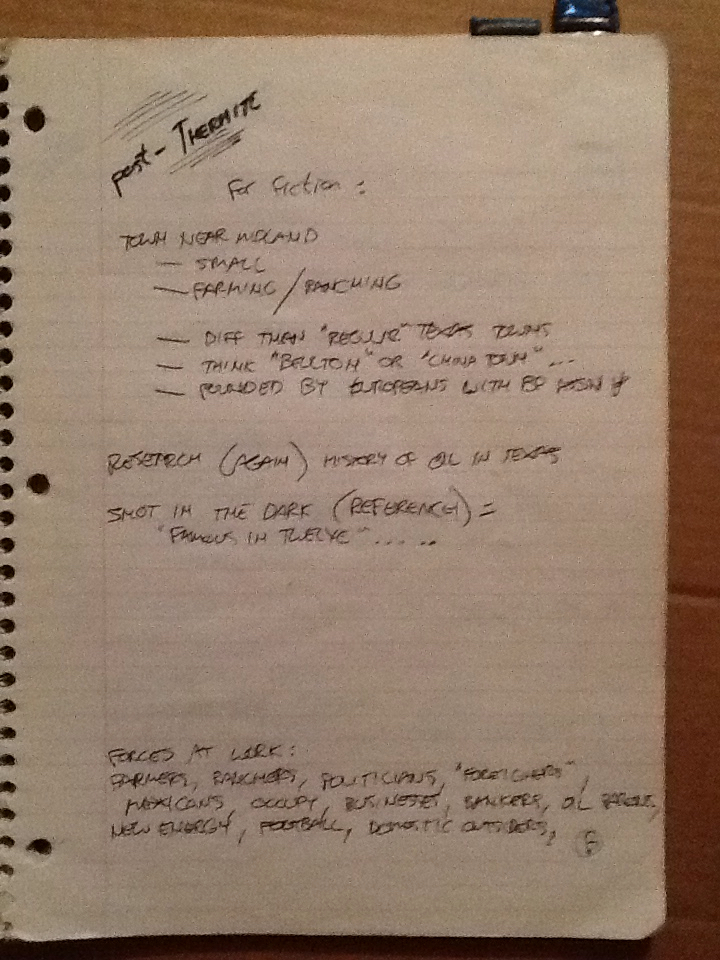 post- THERMITE
For Fiction :
TOWN NEAR MIDLAND
— SMALL
— FARMING / RANCHING
— DIFF THAN "REGULAR" TEXAS TOWNS
— THINK "BELLTOWN" OR "CHINA TOWN" ...
— FOUNDED BY EUROPEANS WITH
RESEARCH (AGAIN) HISTORY OF OIL IN TEXAS
SHOT IN THE DARK (REFERENCE) =
"FAMOUS IN TWELVE" ..... ..
FORCES AT WORK :
FARMERS, RANCHERS, POLITICIANS, "FOREIGNERS",
MEXICANS, OCCUPY, BUSINESES, BANKERS, OIL BARONS,
NEW ENERGY, FOOTBALL, DOMESTIC OUTSIDERS,